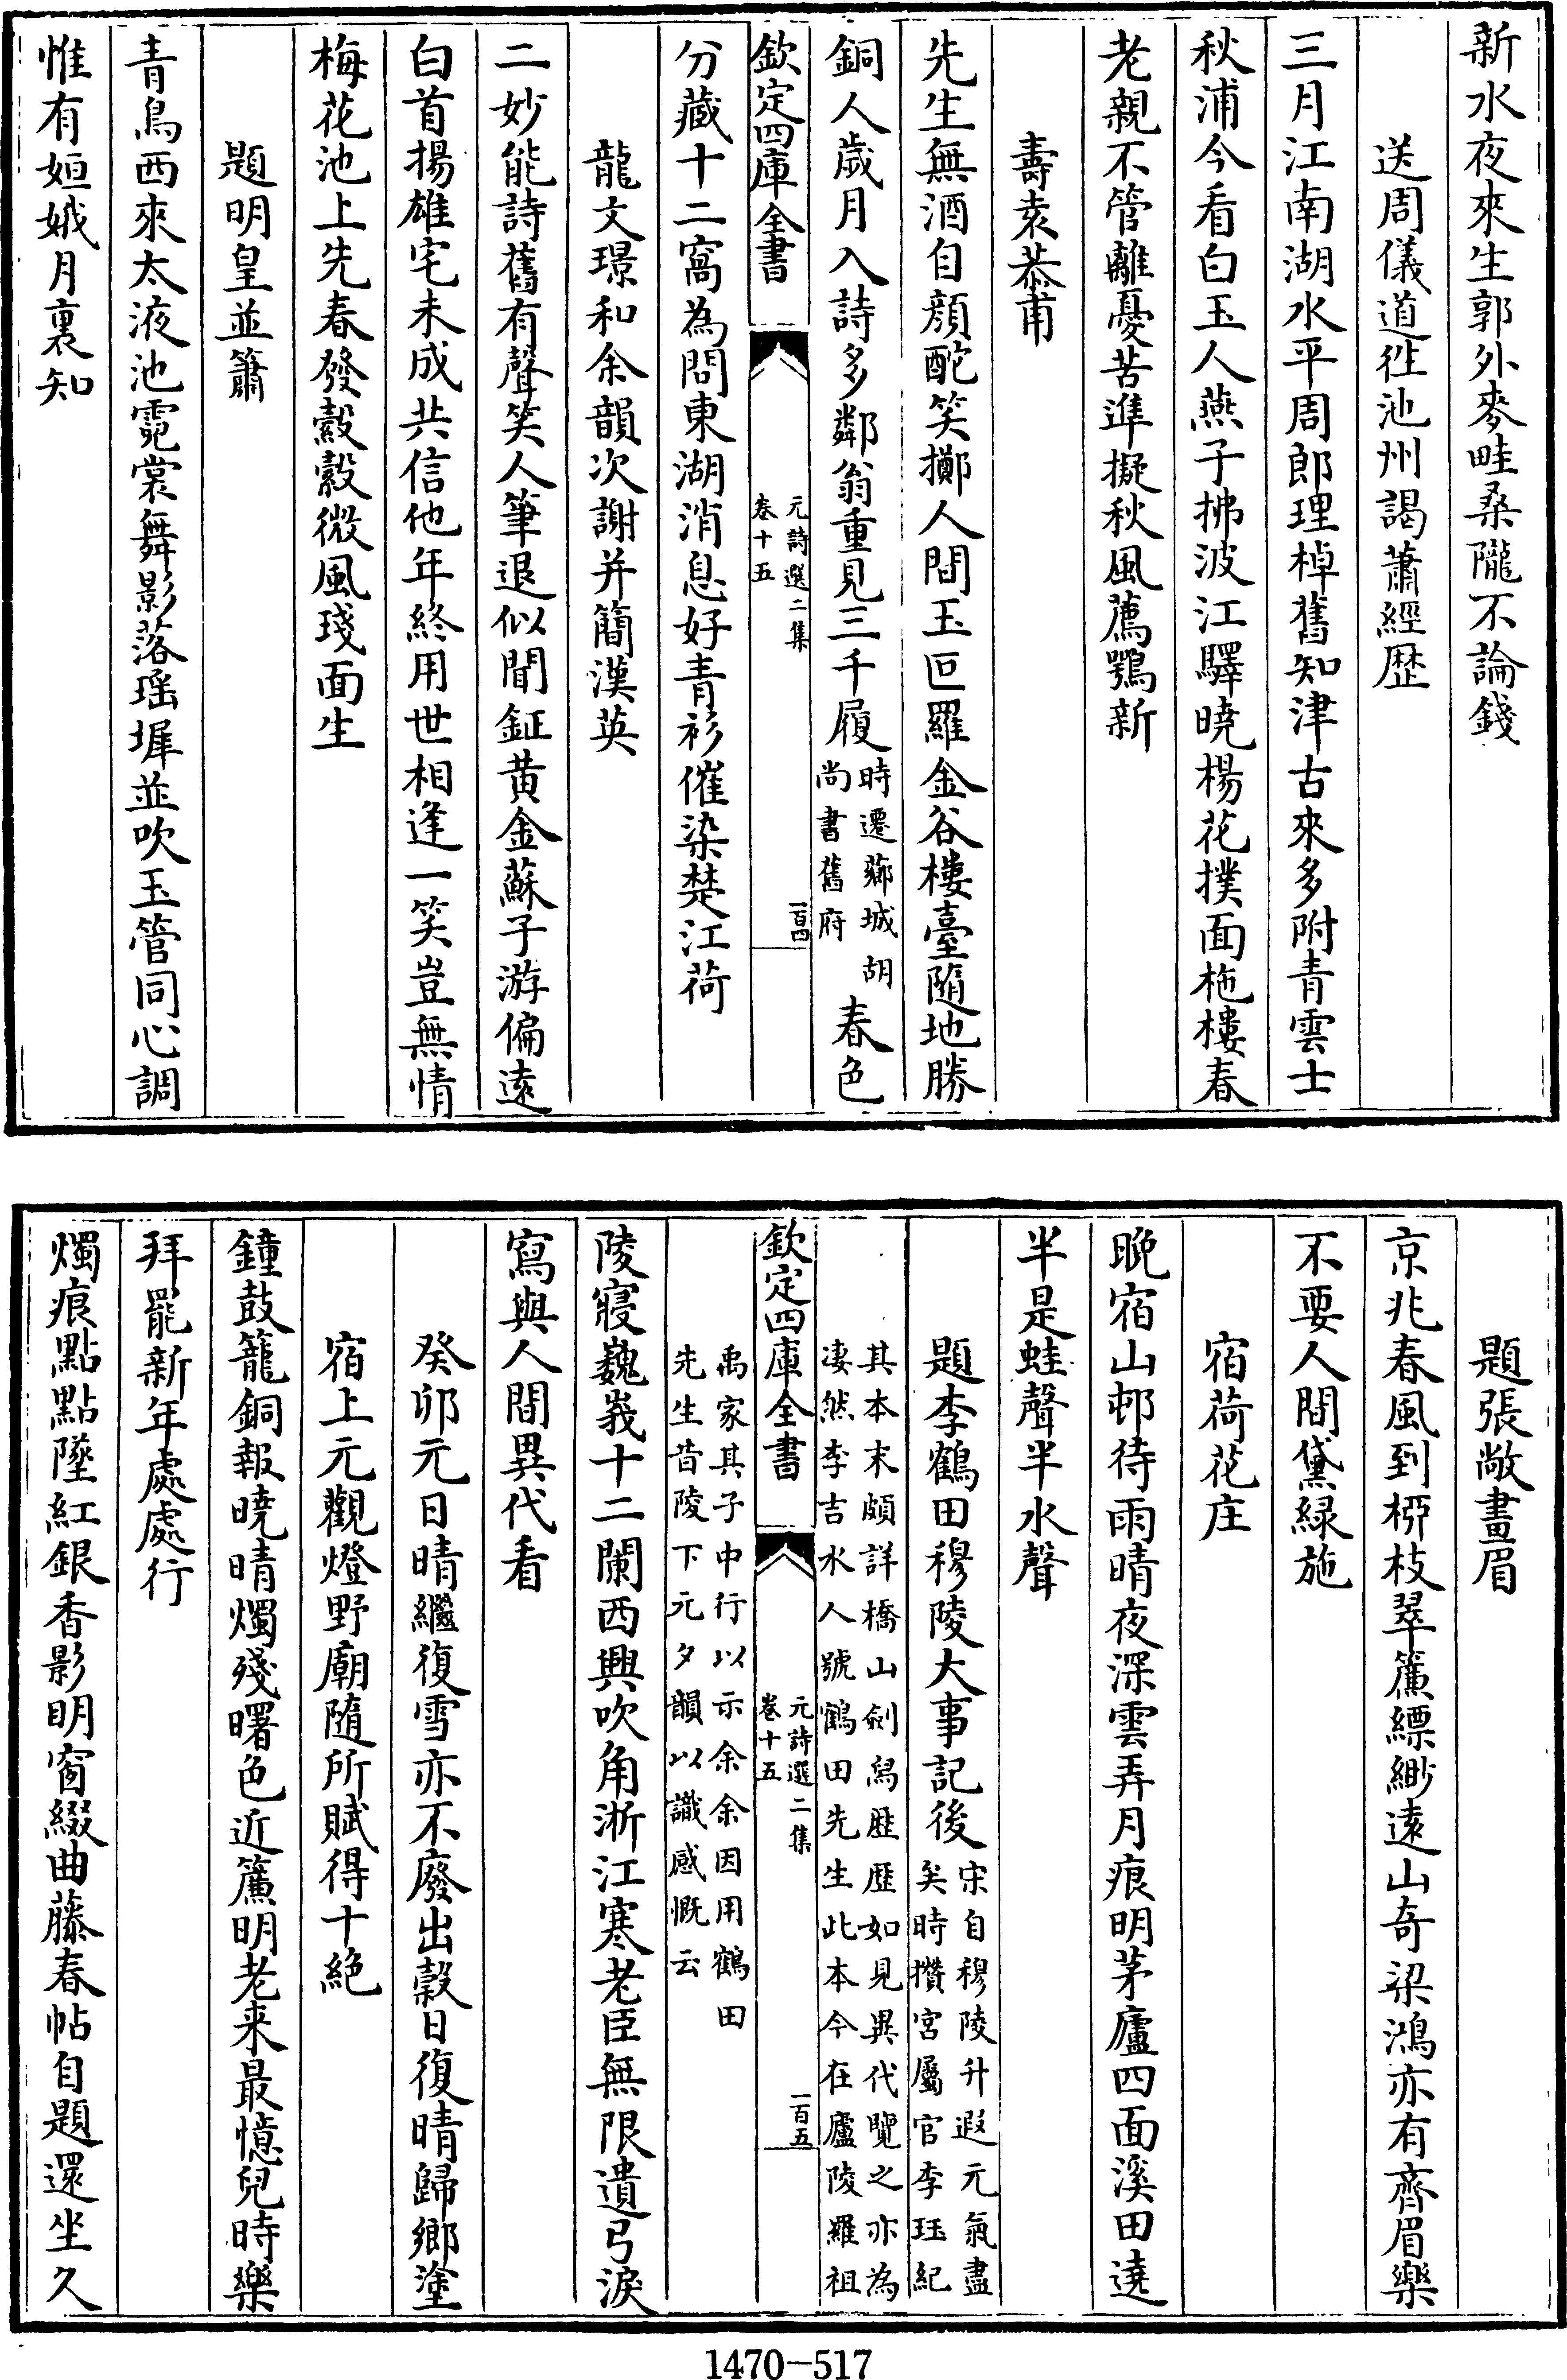 新水夜來生郭外麥畦桑隴不論錢
送周儀道往池州謁蕭經歴
三月江南湖水平周郎理棹舊知津古來多附青雲士
秋浦今看白玉人燕子拂波江驛曉楊花撲面柂樓春
老親不管離憂苦準擬秋風薦鶚新
壽袁恭甫
先生無酒自顔酡笑擲人間玉叵羅金谷樓臺隨地勝
銅人歲月入詩多鄰翁重見三千履時遷薌城胡尚書舊府春色
欽定四庫全書
元詩選二集
卷十五
一百四
分藏十二窩為問東湖消息好青衫催染楚江荷
龍文璟和余韻次謝并簡漢英
二妙能詩舊有聲笑人筆退似聞鉦黄金蘇子游偏遠
白首揚雄宅未成共信他年終用世相逢一笑豈無情
梅花池上先春發縠縠微風琖面生
題明皇並簫
青鳥西來太液池霓裳舞影落瑶墀並吹玉管同心調
惟有姮娥月裏知
題張敞畫眉
京兆春風到栁枝翠簾縹緲遠山奇梁鴻亦有齊眉樂
不要人間黛緑施
宿荷花庄
晚宿山邨待雨晴夜深雲弄月痕明茅廬四面溪田遶
半是蛙聲半水聲
題李鶴田穆陵大事記後宋自穆陵升遐元氣盡矣時攢宫屬官李珏紀
其本末頗詳橋山劍舄歴歴如見異代覽之亦為
凄然李吉水人號鶴田先生此本今在廬陵羅祖
欽定四庫全書
元詩選二集
卷十五
一百五
禹家其子中行以示余余因用鶴田
先生昔陵下元夕韻以識感慨云
陵寢巍峩十二闌西興吹角淅江寒老臣無限遺弓淚
寫與人間異代看
癸卯元日晴繼復雪亦不廢出穀日復晴歸鄉塗
宿上元觀燈野廟隨所賦得十絶
鐘鼓籠銅報曉晴燭殘曙色近簾明老来最憶兒時樂
拜罷新年處處行
燭痕點點墜紅銀香影明窗綴曲藤春帖自題還坐久
1470-517